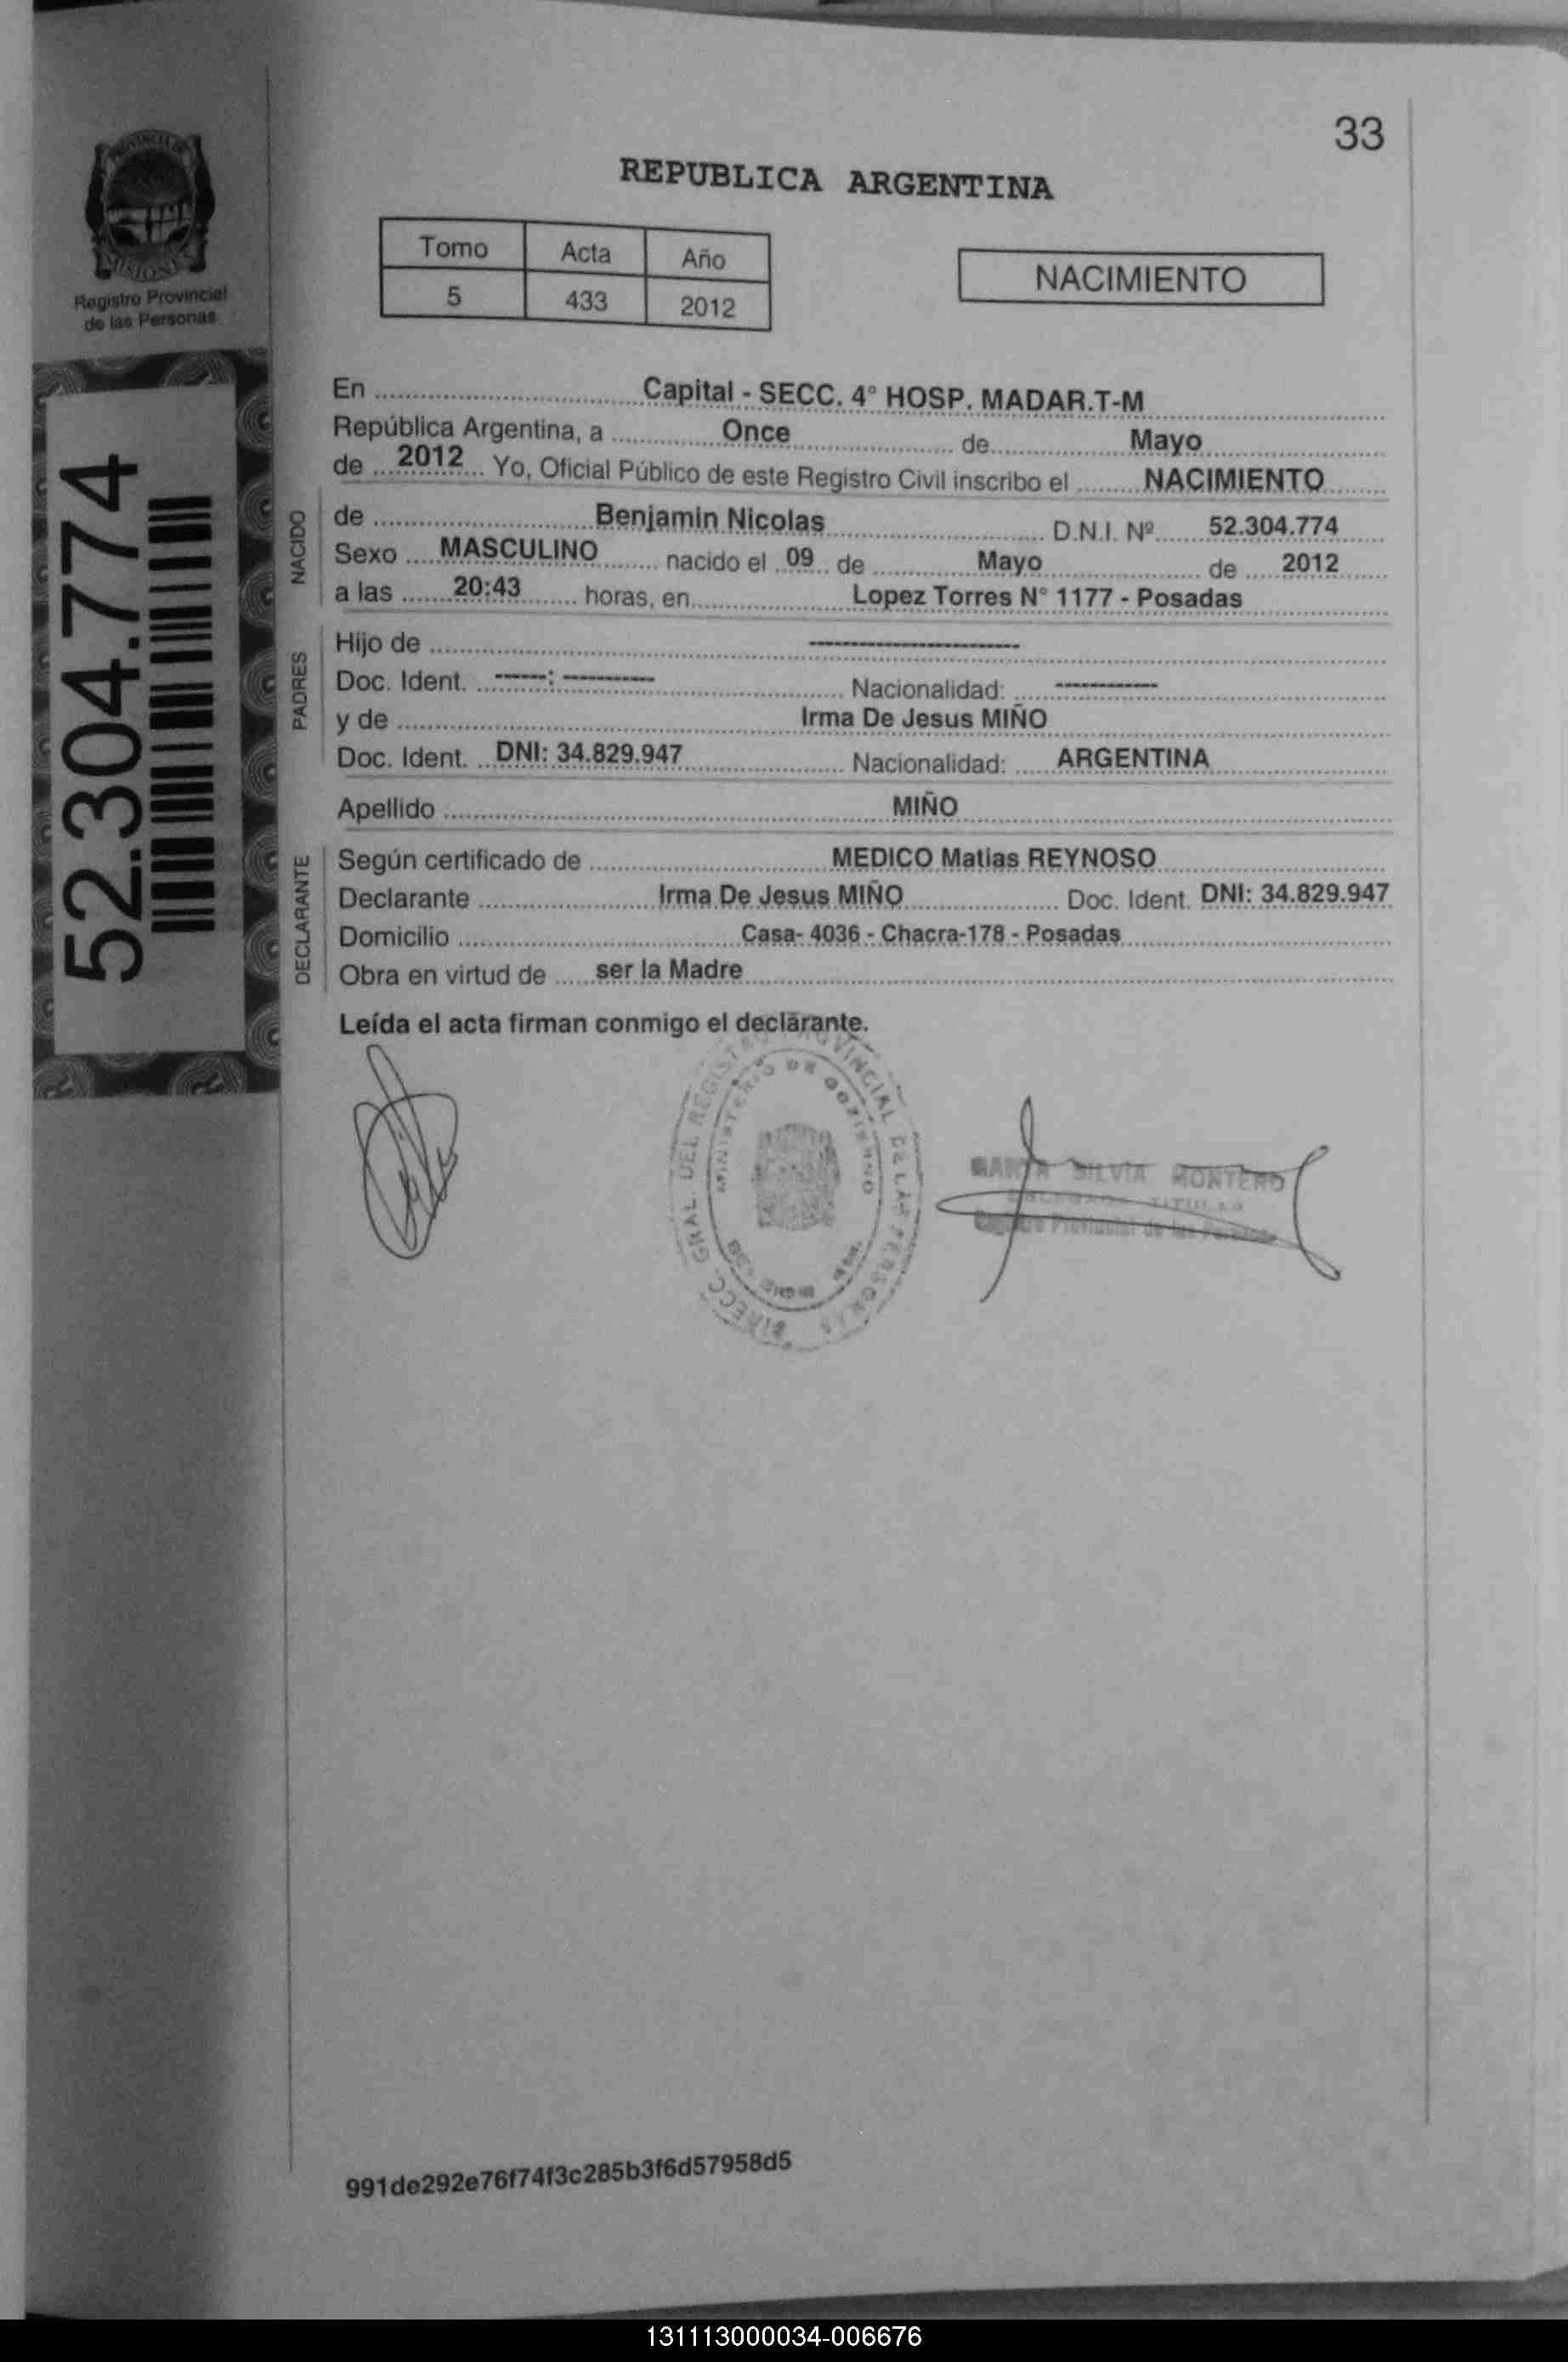 33
REPUBLICA ARGENTINA
PROVINCIA DE
MISIONES
Registro Provincial
de las Personas
Tomo Acta Año
5 433 2012
NACIMIENTO
52.304.774
En Capital - SECC. 4° HOSP. MADAR.T-M
República Argentina, a Once de Mayo
de 2012 Yo, Oficial Público de este Registro Civil inscribo el NACIMIENTO
NACIDO
de Benjamin Nicolas D.N.I. Nº 52.304.774
Sexo MASCULINO nacido el 09 de Mayo de 2012
a las 20:43 horas, en Lopez Torres N° 1177 - Posadas
PADRES
Hijo de --------------------
Doc. Ident. -----: --------- Nacionalidad: ----------
y de Irma De Jesus MIÑO
Doc. Ident. DNI: 34.829.947 Nacionalidad: ARGENTINA
Apellido MIÑO
DECLARANTE
Según certificado de MEDICO Matias REYNOSO
Declarante Irma De Jesus MIÑO Doc. Ident. DNI: 34.829.947
Domicilio Casa- 4036 - Chacra-178 - Posadas
Obra en virtud de ser la Madre
Leída el acta firman conmigo el declarante.
DIRECC. GRAL. DEL REGISTRO PROVINCIAL DE LAS PERSONAS
MINISTERIO DE GOBIERNO
SILVIA MONTERO
TITULAR
Provincial de las Personas
991de292e76f74f3c285b3f6d57958d5
131113000034-006676